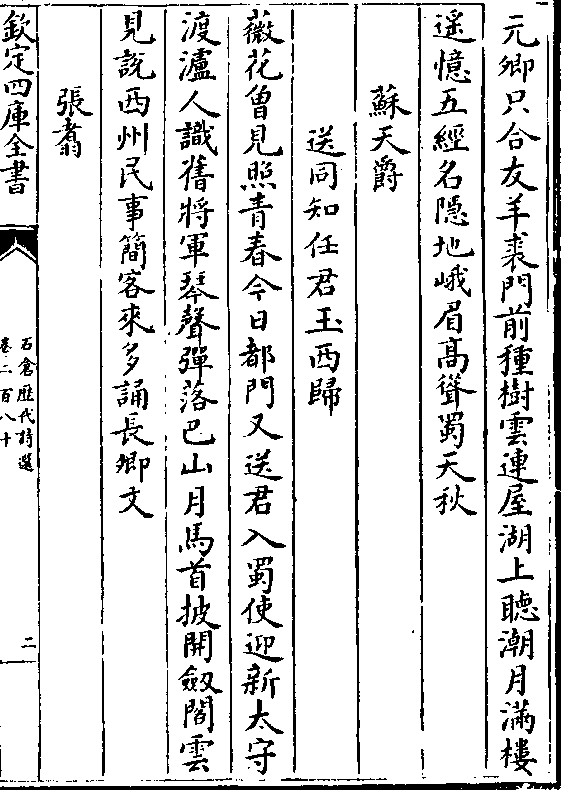 元卿只合友羊裘門前種樹雲連屋湖上聴潮月滿樓
遥憶五經名隱地峨眉髙聳蜀天秋
蘇天爵
送同知任君玉西歸
薇花曾見照青春今日都門又送君入蜀使迎新太守
渡瀘人識舊將軍琴聲彈落巴山月馬首披開劔閣雲
見説西州民事簡客來多誦長卿文
張翥
欽定四庫全書
石倉歴代詩選
卷二百八十
二